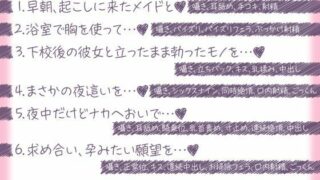 1.早朝、起こしに来たメイドと♥
囁き、耳舐め、手コキ、射精
2.浴室で胸を使って…♥
囁き、パイズリ、パイズリフェラ、ぶっかけ射精
3.下校後の彼女と立ったまま勃ったモノを…♥
囁き、立ちバック、キス、乳揉み、中出し
4.まさかの夜這いを…♥
囁き、シックスナイン、同時絶頂、口内射精、ごっくん
5.夜中だけどナカへおいで…♥
囁き、耳舐め、騎乗位、乳首責め、寸止め、連続絶頂、中出し
6.求め合い、孕みたい願望を…♥
囁き、正常位、キス、連続中出し、お掃除フェラ、口内射精、ごっくん